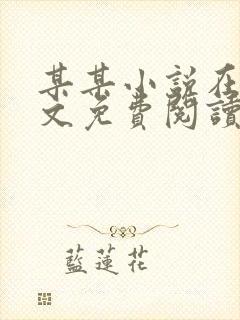 某某小说在
文免費閱讀
藍蓮花